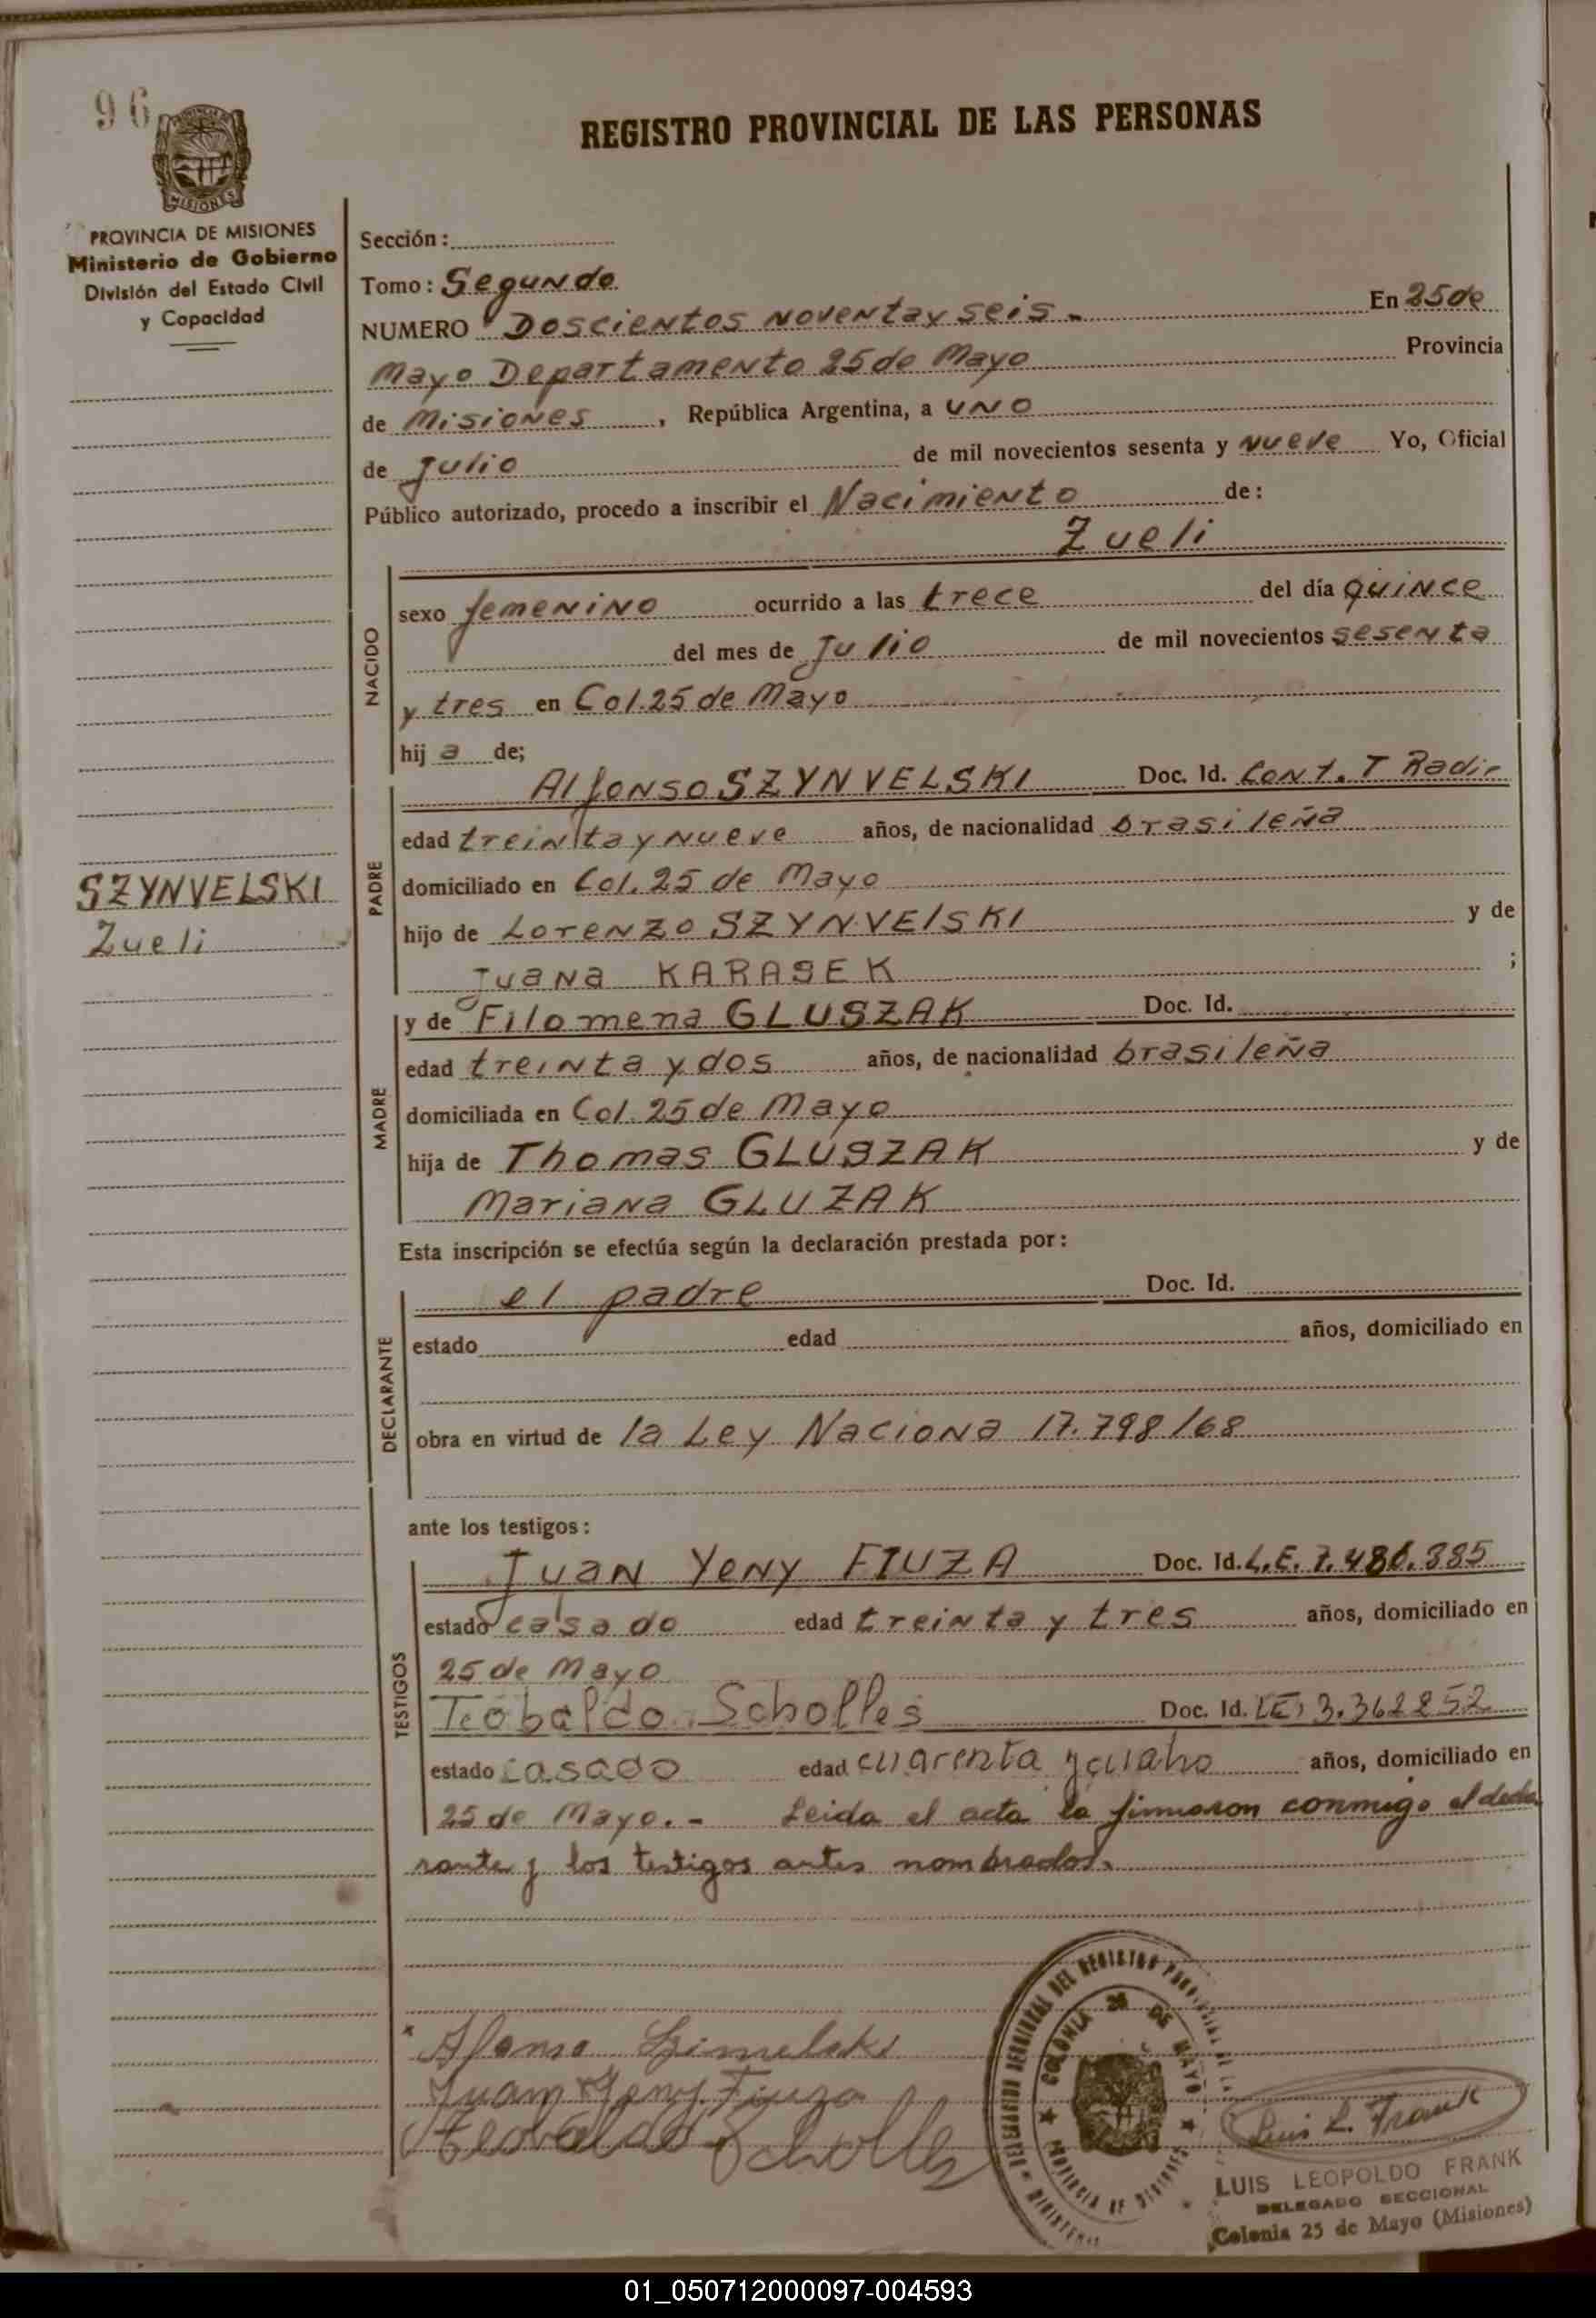 96
MISIONES
PROVINCIA DE MISIONES
Ministerio de Gobierno
División del Estado Civil
y Capacidad
REGISTRO PROVINCIAL DE LAS PERSONAS
Sección:
Tomo: Segundo
NUMERO Doscientos noventa y seis.- En 25 de
Mayo Departamento 25 de Mayo Provincia
de Misiones, República Argentina, a uno
de Julio de mil novecientos sesenta y nueve Yo, Oficial
Público autorizado, procedo a inscribir el Nacimiento de:
Zueli
NACIDO
sexo femenino ocurrido a las trece del día quince
del mes de Julio de mil novecientos sesenta
y tres en Col. 25 de Mayo
hij a de;
PADRE
Alfonso SZYNVELSKI Doc. Id. Cont. T Radic
edad treinta y nueve años, de nacionalidad brasileña
domiciliado en Col. 25 de Mayo
hijo de Lorenzo SZYNVElSKI y de
Juana KARASEK ;
SZYNVELSKI
Zueli
MADRE
y de Filomena GLUSZAK Doc. Id.
edad treinta y dos años, de nacionalidad brasileña
domiciliada en Col. 25 de Mayo
hija de Thomas GLUSZAK y de
Mariana GLUZAK
Esta inscripción se efectúa según la declaración prestada por:
DECLARANTE
el padre Doc. Id.
estado edad años, domiciliado en
obra en virtud de la Ley Naciona 17.798/68
ante los testigos:
TESTIGOS
Juan Yeny FIUZA Doc. Id. L.E. 7.486.385
estado casado edad treinta y tres años, domiciliado en
25 de Mayo
Teobaldo Scholles Doc. Id. LE, 3.362252
estado casado edad cuarenta y cuatro años, domiciliado en
25 de Mayo.- Leida el acta la firmaron conmigo el decla
rante y los testigos antes nombrados.
Juan Yeny Fiuza
Teobaldo Scholles
COLONIA 25 DE MAYO
PROVINCIA DE MISIONES
Luis L. Frank
LUIS LEOPOLDO FRANK
DELEGADO SECCIONAL
Colonia 25 de Mayo (Misiones)
01_050712000097-004593